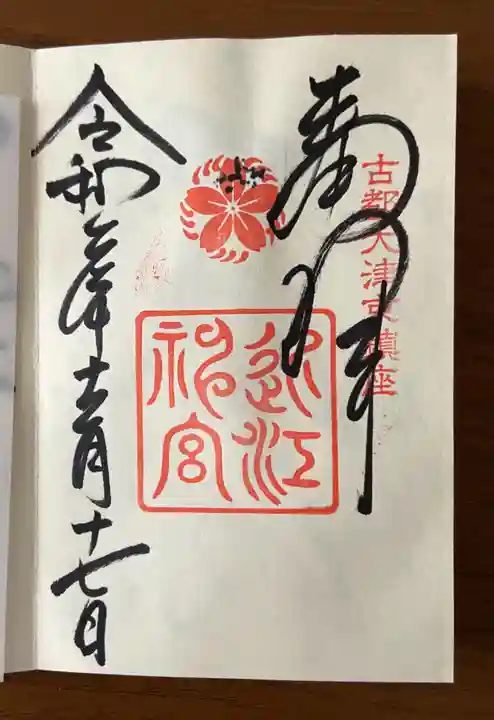 奉拝
古都大津京鎮座
近江神宮
令和六年十二月十七日